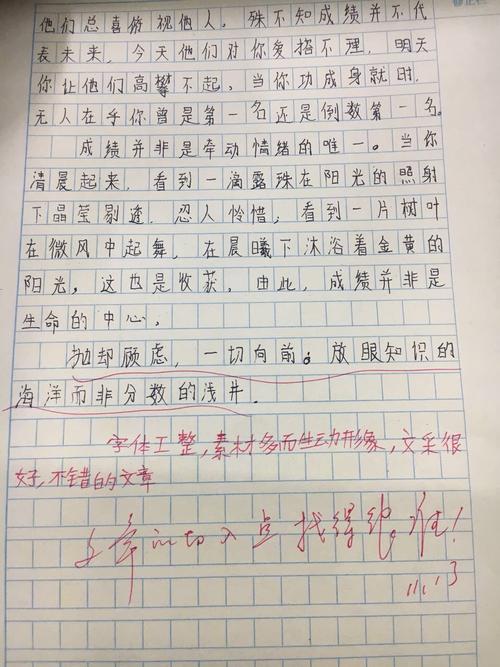 他们总喜俯视他人。殊不知成绩并不代
表未来，今天他们对你爱搭不理，明天
你让他们高攀不起，当你功成身就时，
无人在乎你曾是第一名还是倒数第一名。
成绩并非是牵动情绪的唯一。当你
清晨起来，看到一滴露珠在阳光的照射
下晶莹剔透，忍人怜惜，看到一片树叶
在微风中起舞，在晨曦下沐浴着金黄的
阳光，这也是收获，由此，成绩并非是
生命的中心，
抛却顾虑，一切向前。放眼知识的
海洋而非分数的浅井．
字体工整，素材多而生动形象，文采很
好，不错的文章
文章的切入点找得绝 准！
11.13